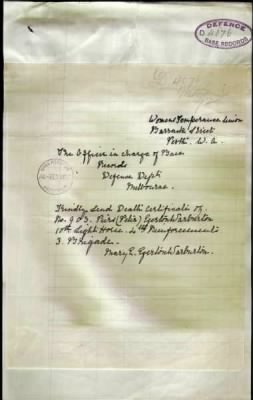 DEFENCE
D 4176
BASE RECORDS
Womens Temperance Union
Barrack Street
Perth. W. A.
The Officer in charge of Base
Records
Defence Dept
Melbourne.
Kindly Send Death Certificate of
No. 903. Piers (Peter) Egerton Warburton
10th Light Horse. 4th Reinforcements
3. Brigade.
Mary E. Egerton Warburton.